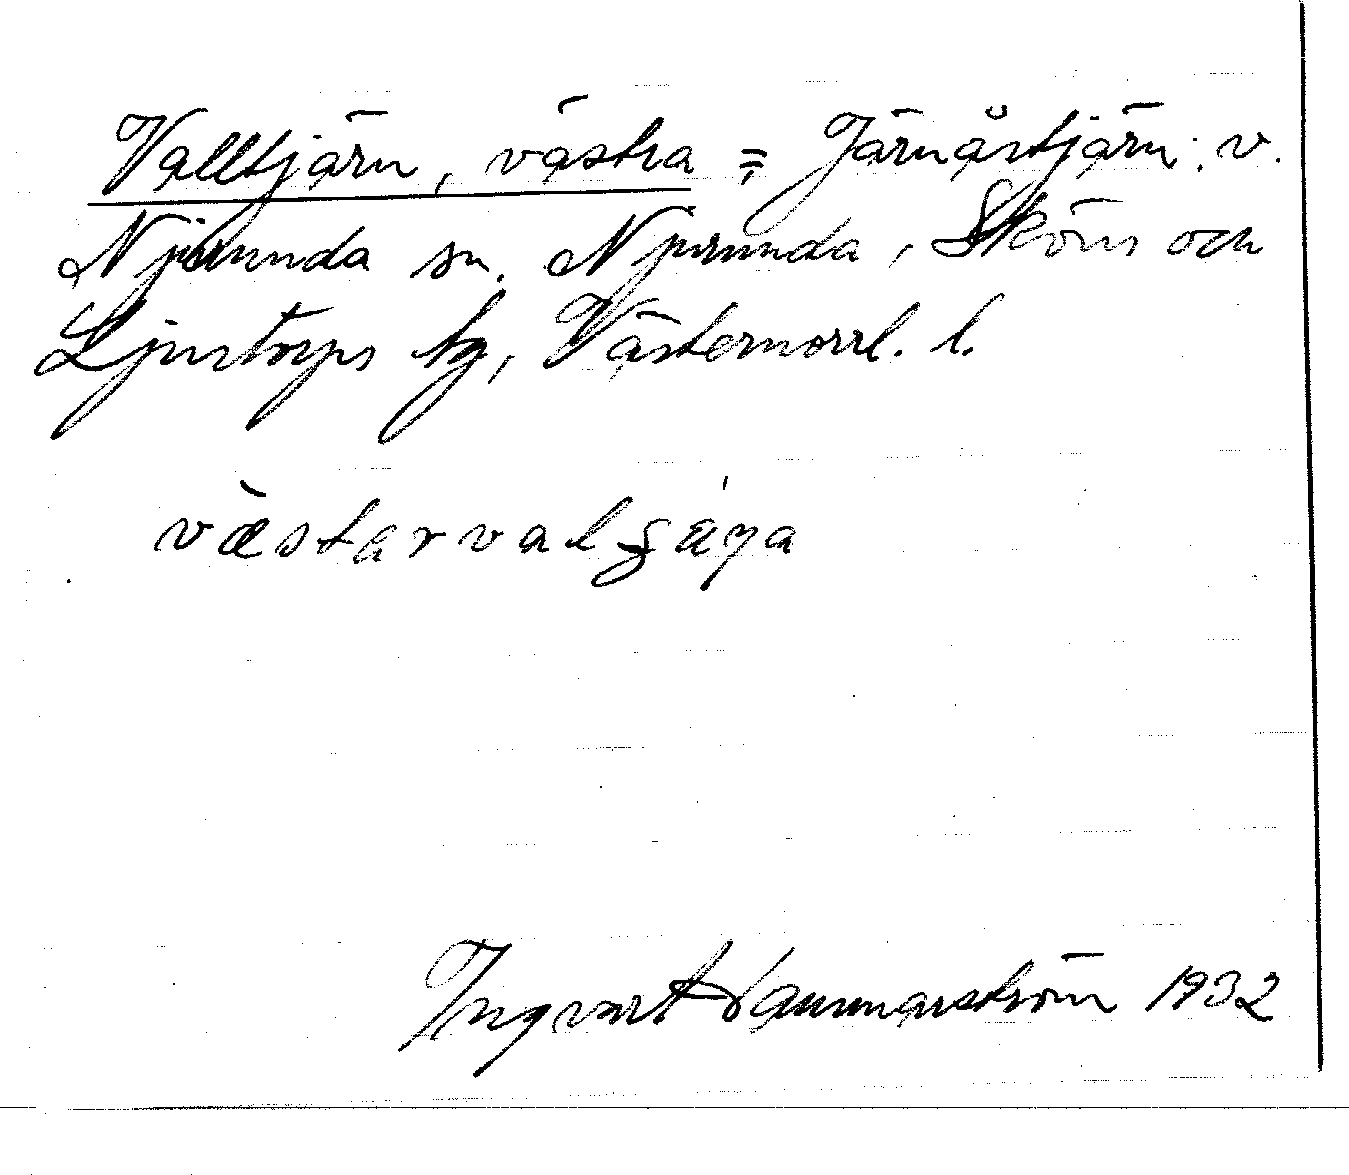 Valltjärn, västra = Järnåstjärn, v.
Njurunda sn. Njurunda, Sköns och
Ljustorps tg, Västernorrl. l.
væstarval
Ingvart Hammarström 1932